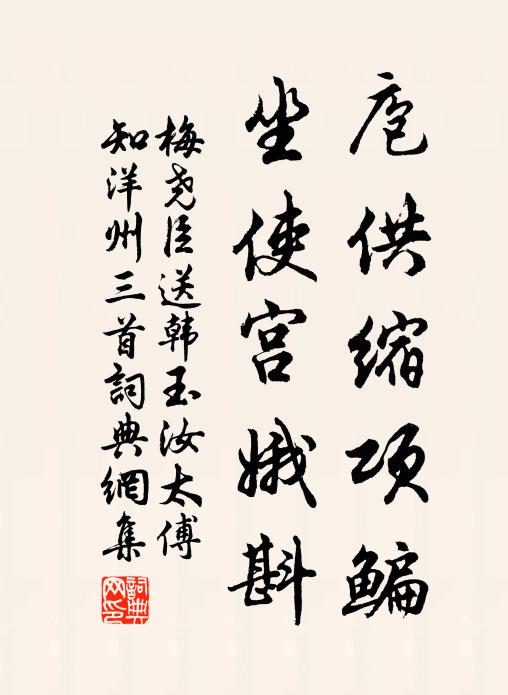 庖供缩项鳊
坐使宫娥斟
梅尧臣送韩玉汝太傅
知洋州三首詞典網集
詞典网印